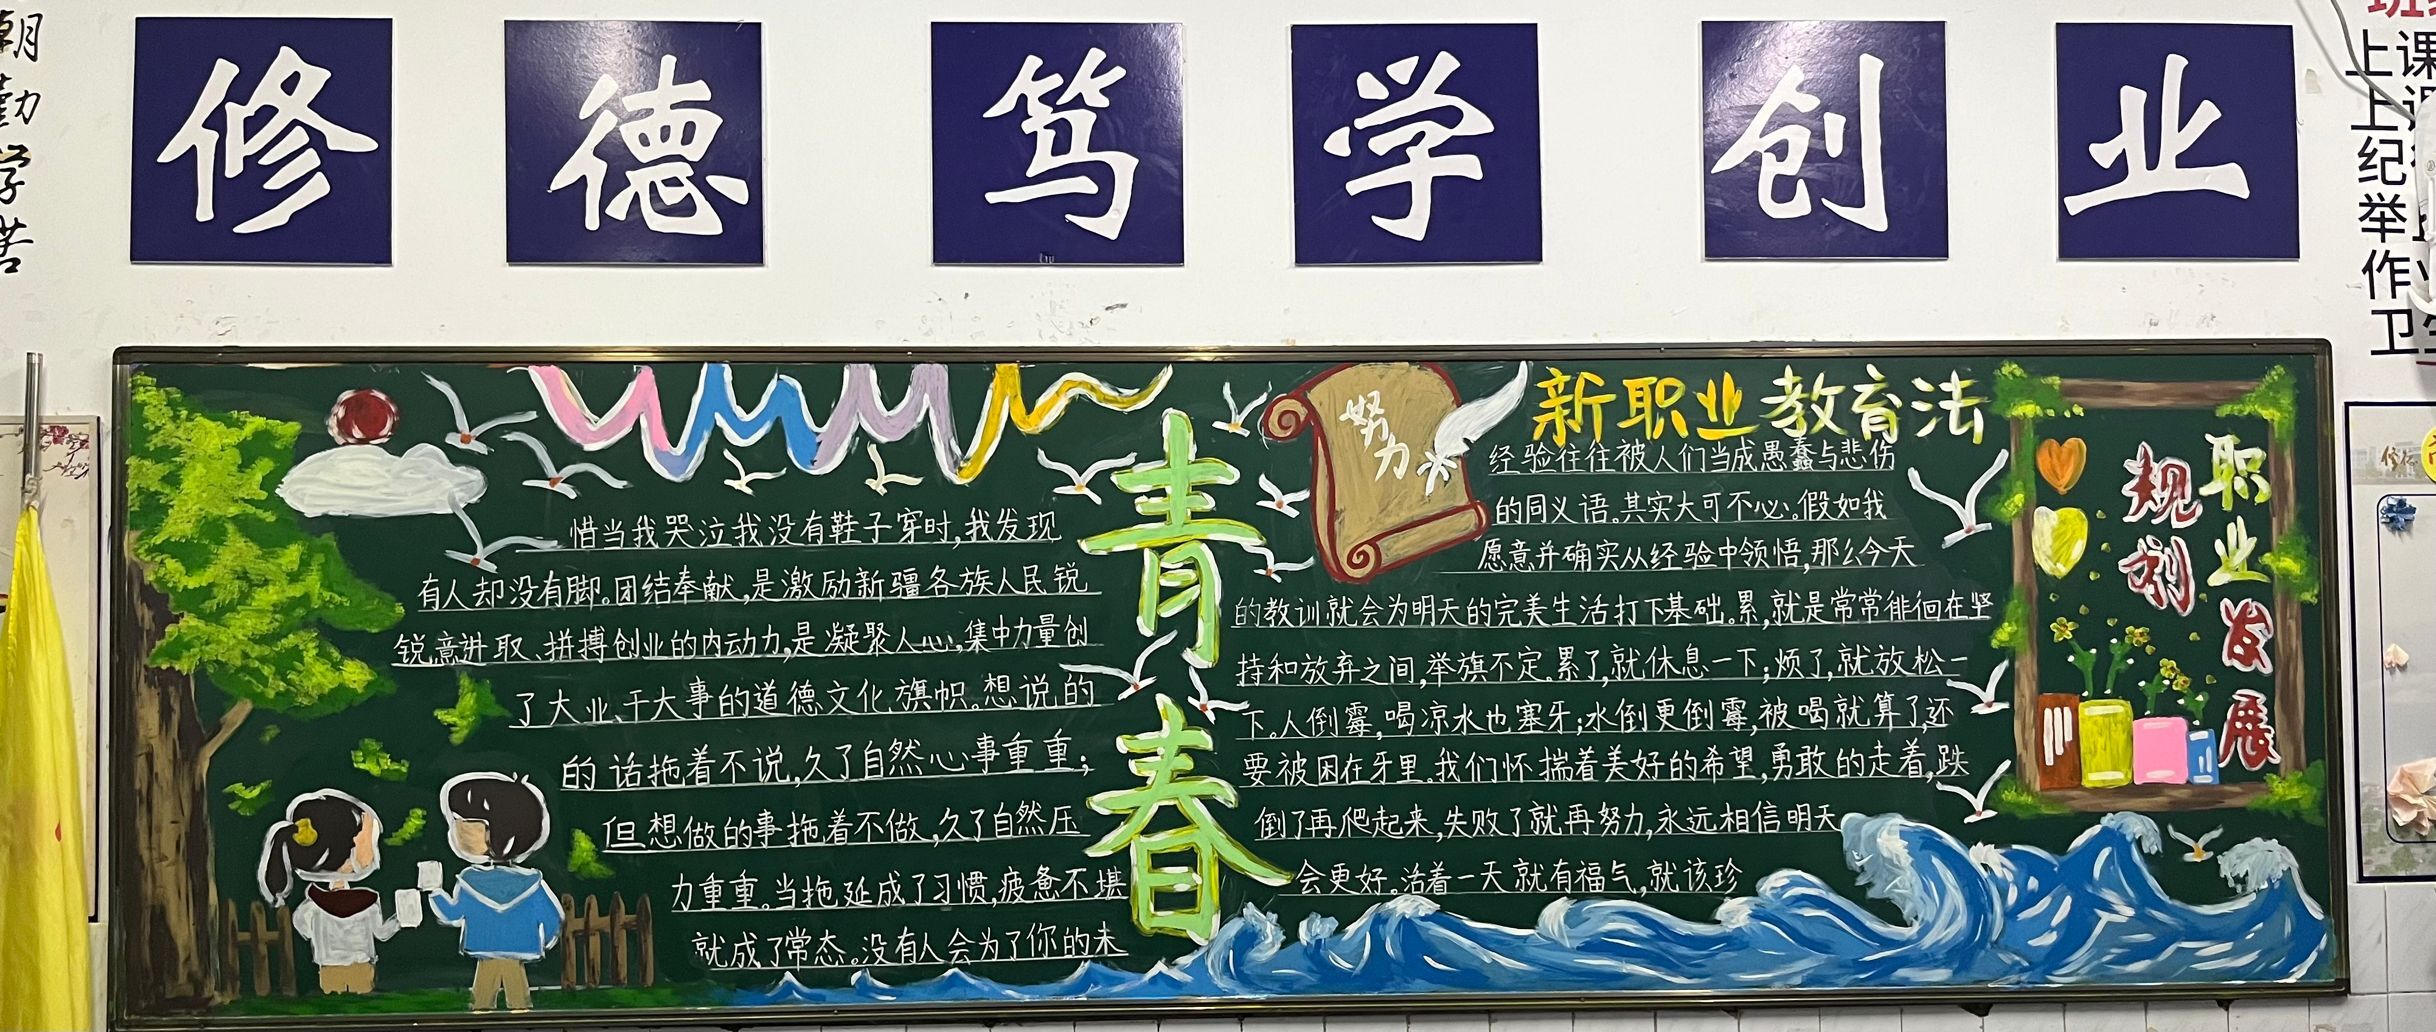 修德笃学创业
朝
勤
学
苦
上课
上课
纪
举
作
卫生
青春
惜当我哭泣我没有鞋子穿时,我发现
有人却没有脚。团结奉献,是激励新疆各族人民锐
锐意进取、拼搏创业的内动力,是凝聚人心,集中力量创
了大业、干大事的道德文化旗帜。想说的
的话拖着不说,久了自然心事重重;
但想做的事拖着不做,久了自然压
力重重。当拖延成了习惯,疲惫不堪
就成了常态。没有人会为了你的未
努力
新职业教育法
经验往往被人们当成愚蠢与悲伤
的同义语。其实大可不心。假如我
愿意并确实从经验中领悟,那么今天
的教训就会为明天的完美生活打下基础。累,就是常常徘徊在坚
持和放弃之间,举旗不定.累了,就休息一下;烦了,就放松一
下。人倒霉,喝凉水也塞牙;水倒更倒霉,被喝就算了,还
要被困在牙里.我们怀揣着美好的希望,勇敢的走着,跌
倒了再爬起来,失败了就再努力,永远相信明天
会更好。活着一天就有福气,就该珍
职业发展
规划